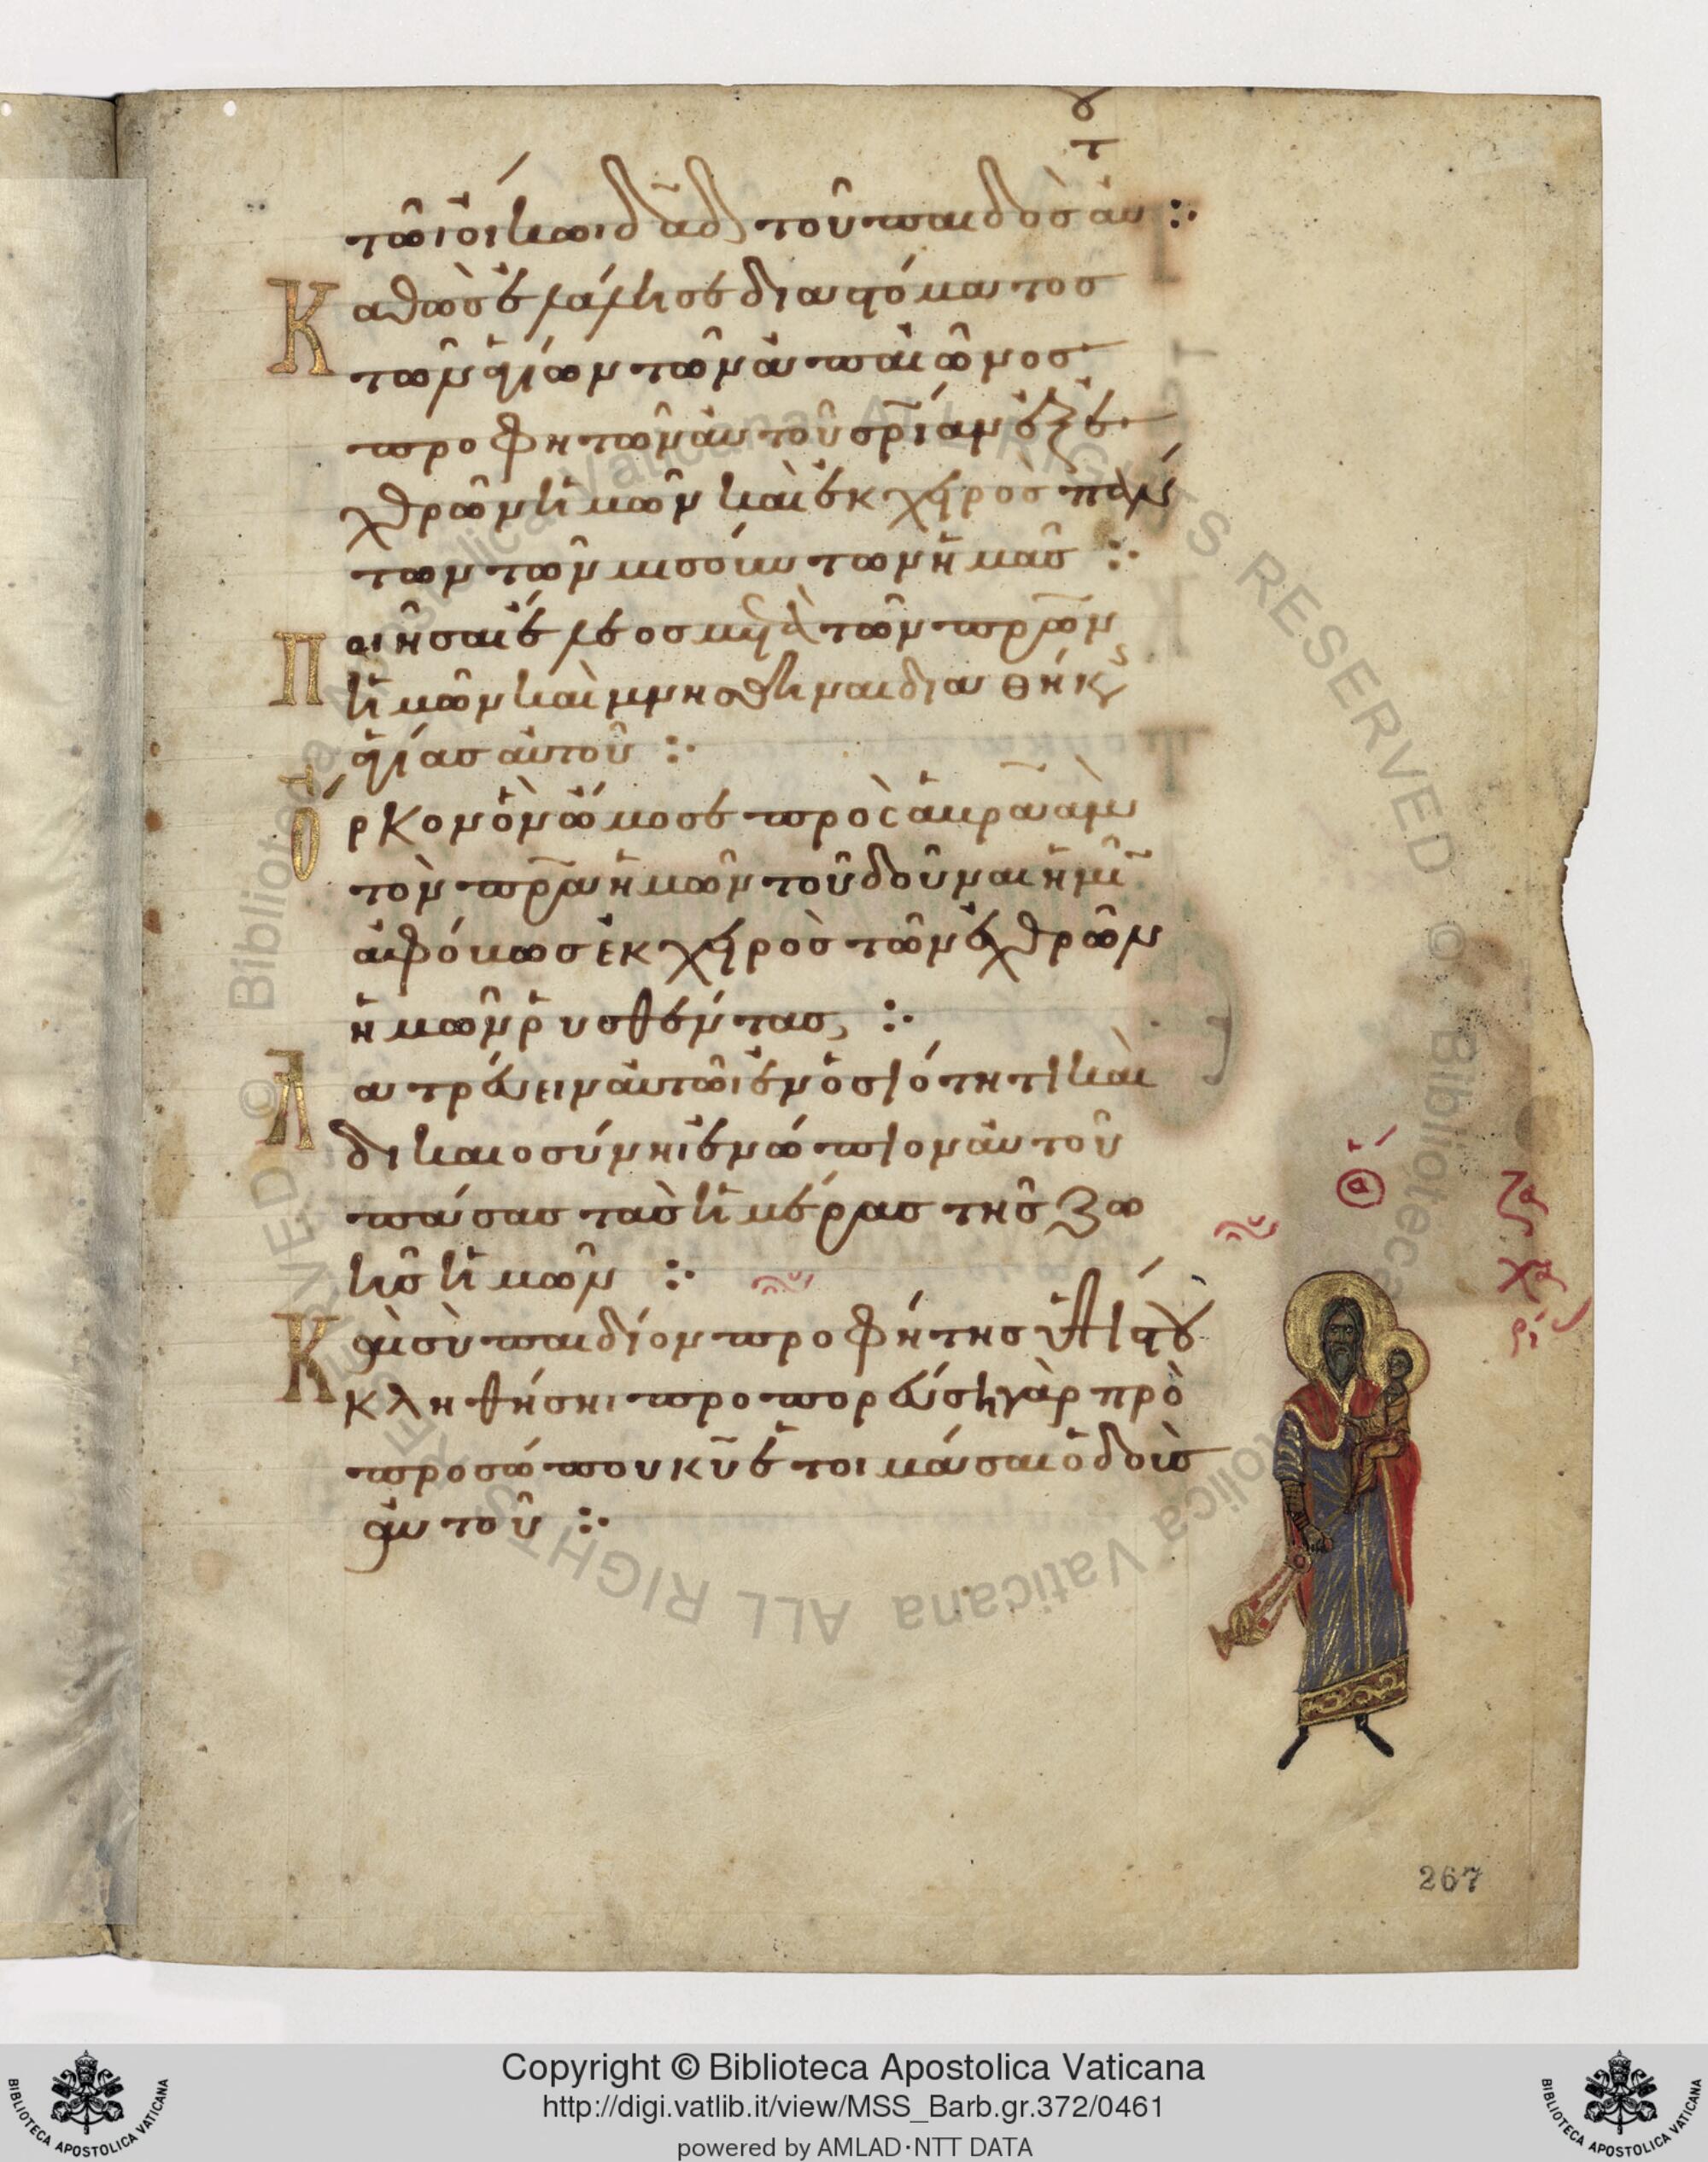 τῶι οἴκωι δᾱδ τοῦ παιδὸσ αὐτοῦ :·
Καθὼσ ἐλάλησε διαστόματοσ
τῶν ἁγίων τῶν ἀπαιῶνοσ
προφητῶν αὐτοῦ σρ̄ίαν ἐξ ἐ
χθρῶν ἡμῶν καὶ ἐκ χειρὸσ πάν
των τῶν μισούντων ἡμᾶσ :·
Ποιῆσαι ἔλεοσ μετὰ τῶν πρ̄ων
ἡμῶν καὶ μνησθῆναι διαθήκησ
ἁγίασ αὐτοῦ :·
Ὅρκον ὃν ὤμοσε πρὸσ ἁβραὰμ
τὸν πρ̄α ἡμῶν τοῦ δοῦναι ἡμῖν
ἀφόβωσ ἐκ χειρὸσ τῶν ἐχθρῶν
ἡμῶν ῥυσθέντασ :·
Λατρεύειν αὐτῶι ἐν ὁσιότητι καὶ
δικαιοσύνηι ἐνώπιον αὐτοῦ
πάσασ τὰσ ἡμέρασ τῆσ ζω
ῆσ ἡμῶν :·
Καὶ σὺ παιδίον προφήτησ ὑψίστου
κληθήσηι προπορεύση γὰρ πρὸ
προσώπου κῡ ἑτοιμάσαι ὁδοὺσ
αὐτοῦ :·
ὁ ἅ
ζα
χα
ρί
267
Copyright © Biblioteca Apostolica Vaticana
http://digi.vatlib.it/view/MSS_Barb.gr.372/0461
powered by AMLAD·NTT DATA
BIBLIOTECA APOSTOLICA VATICANA
BIBLIOTECA APOSTOLICA VATICANA
© Biblioteca Apostolica Vaticana ALL RIGHTS RESERVED
© Biblioteca Apostolica Vaticana ALL RIGHTS RESERVED